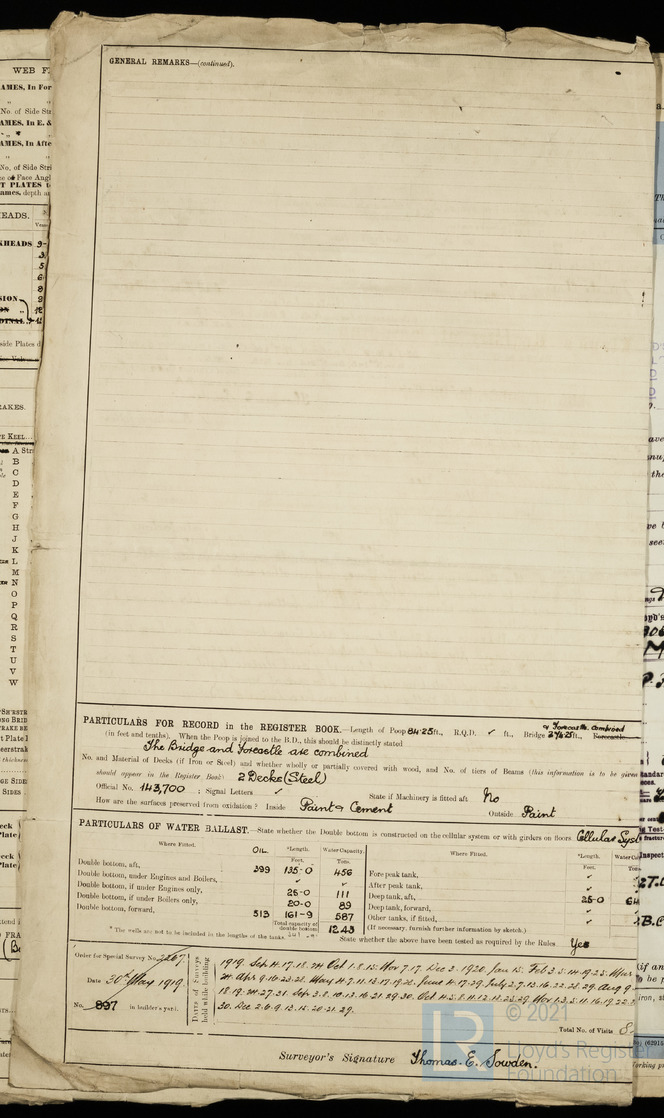 GENERAL REMARKS—(continued).
PARTICULARS FOR RECORD in the REGISTER BOOK.—Length of Poop 84·25 ft., R.Q.D. ✓ ft., Bridge & Forecastle Combined ft., Forecastle
(in feet and tenths). When the Poop is joined to the B.D., this should be distinctly stated
The Bridge and Forecastle are combined
No. and Material of Decks (if Iron or Steel) and whether wholly or partially covered with wood, and No. of tiers of Beams (this information is to be given
should appear in the Register Book) 2 Decks (Steel)
Official No. 143,700 ; Signal Letters ✓ State if Machinery is fitted aft No
How are the surfaces preserved from oxidation? Inside Paint & Cement Outside Paint
PARTICULARS OF WATER BALLAST.—State whether the Double bottom is constructed on the cellular system or with girders on floors. Cellular Syst
Where Fitted. OIL. *Length. Water Capacity. Where Fitted. *Length.
Feet. Tons.
Double bottom, aft, 399 135-0 456 Fore peak tank, ✓
Double bottom, under Engines and Boilers, ✓ ✓ After peak tank, ✓
Double bottom, if under Engines only, 25-0 111 Deep tank, aft, 25-0
Double bottom, if under Boilers only, 20-0 89 Deep tank, forward, ✓
Double bottom, forward, 513 161-9 587 Other tanks, if fitted, ✓
Total capacity of double bottom 1243 (If necessary, furnish further information by sketch.)
* The wells are not to be included in the lengths of the tanks.
State whether the above have been tested as required by the Rules. Yes
Order for Special Survey No. 2267
Date 30th May 1919
No. 897 in builder's yard.
Dates of Surveys held while building
1919. Sep 4. 17. 18. 24 Oct 1. 8. 15. Nov 7. 17. Dec 3. 1920. Jan 15. Feb 3. 5. 14. 19. 25. Mar
24. Apr 9. 16. 23. 28. May 4. 7. 11. 13. 17. 19. 26. June 4. 17. 29. July 2. 7. 13. 16. 22. 28. 29. Aug 9.
18. 19. 24. 27. 31. Sep 3. 8. 10. 13. 16. 21. 29. 30. Oct 4. 5. 8. 11. 12. 14. 25. 29. Nov 1. 3. 5. 11. 16. 19. 22.
30. Dec 2. 6. 9. 13. 15. 20. 21. 29.
Total No. of Visits
Surveyor's Signature Thomas. E. Sowden.
© 2021
Lloyd's Register
Foundation